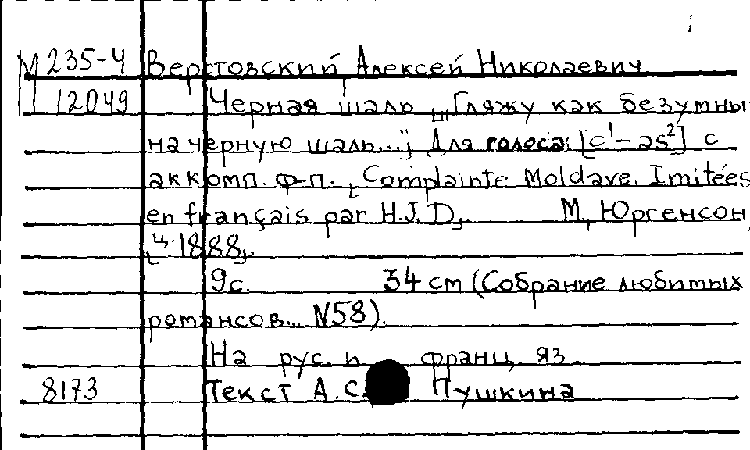 М 235-4 Верстовский, Алексей Николаевич
12049 Черная шаль „Гляжу как безумны
на черную шаль..."; Для голоса [c¹-as²] с
аккомп. ф-п. [Complainte Moldave. Imitées
en français par H.J.D. М, Юргенсон,
1888.
9с. 34 cm (Собрание любимых
романсов... N58).
На рус. и франц. яз.
8173 Текст А.С. Пушкина